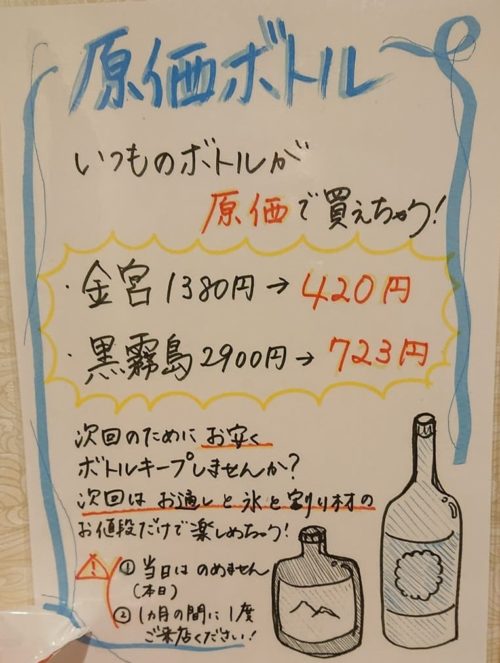 原価ボトル
いつものボトルが
原価で買えちゃう!
・金宮 1380円→420円
・黒霧島2900円→723円
次回のためにお安く
ボトルキープしませんか?
次回はお通しと氷と割り材の
お値段だけで楽しめちゃう!
! ①当日はのめません
(本日)
②1ヵ月の間に1度
ご来店ください!